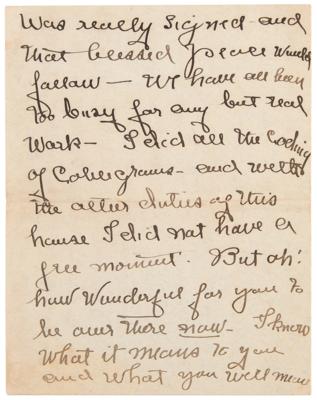 was really signed - and
that blessed peace would
follow - We have all been
too busy for any but real
work - I did all the Coding
of Cablegrams - and with
the other duties of this
house I did not have a
free moment. But oh!
how wonderful for you to
be over there now - I know
what it means to you
and what you will mean